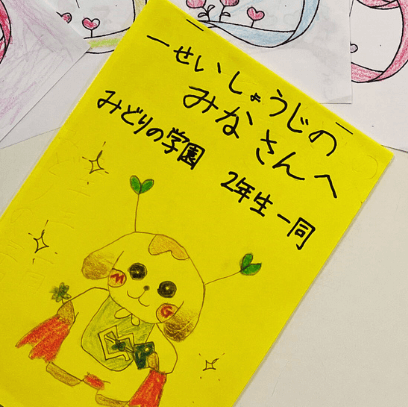 一せいしょうじの
みなさんへ
みどりの学園 2年生一同
M G